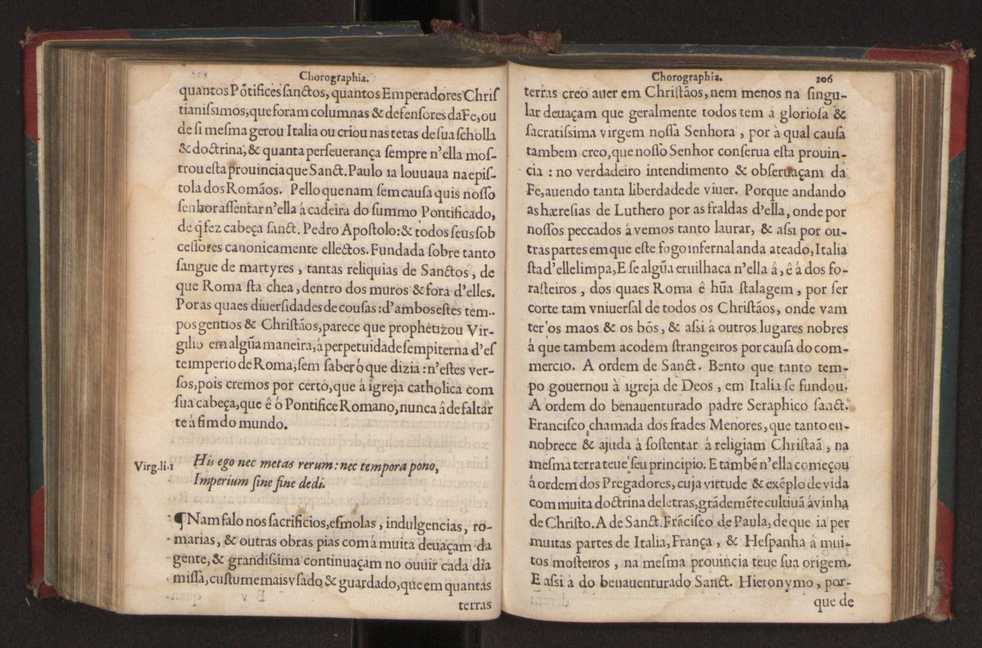 Chorographia.
quantos Põtifices sanctos, quantos Emperadores Chris
tianissimos, que foram columnas & defensores da Fe, ou
de si mesma gerou Italia ou criou nas tetas de sua scholla
& doctrina, & quanta perseuerança sempre n'ella mos-
trou esta prouincia que Sanct. Paulo ia louuaua na epis-
tola dos Romãos. Pello que nam sem causa quis nosso
senhor assentar n'ella á cadeira do summo Pontificado,
de q̃ fez cabeça sanct. Pedro Apostolo: & todos seus sob
cessores canonicamente ellectos. Fundada sobre tanto
sangue de martyres, tantas reliquias de Sanctos, de
que Roma sta chea, dentro dos muros & fora d'elles.
Por as quaes diuersidades de cousas: d'ambos estes tem-
pos gentios & Christãos, parece que prophetizou Vir-
gilio em algũa maneira, á perpetuidade sempiterna d'es
te imperio de Roma, sem saber ó que dizia: n'estes ver-
sos, pois cremos por certo, que á igreja catholica com
sua cabeça, que ê ó Pontifice Romano, nunca â de faltar
te á fim do mundo.
Virg. li. 1 His ego nec metas rerum: nec tempora pono,
Imperium sine fine dedi.
¶ Nam falo nos sacrificios, esmolas, indulgencias, ro-
marias, & outras obras pias com á muita deuaçam da
gente, & grandissima continuaçam no ouuir cada dia
missa, custume mais vsado & guardado, que em quantas
terras
Chorographia. 206
terras creo auer em Christãos, nem menos na singu-
lar deuaçam que geralmente todos tem á gloriosa &
sacratissima virgem nossa Senhora, por á qual causa
tambem creo, que nosso Senhor conserua esta prouin-
cia: no verdadeiro intendimento & obseruaçam da
Fe, auendo tanta liberdade de viuer. Porque andando
as hæresias de Luthero por as fraldas d'ella, onde por
nossos peccados á vemos tanto laurar, & assi por ou-
tras partes em que este fogo infernal anda ateado, Italia
sta d'elle limpa, E se algũa eruilhaca n'ella á, ê á dos fo-
rasteiros, dos quaes Roma ê hũa stalagem, por ser
corte tam vniuersal de todos os Christãos, onde vam
ter os maos & os bõs, & assi á outros lugares nobres
á que tambem acodem strangeiros por causa do com-
mercio. A ordem de Sanct. Bento que tanto tem-
po gouernou á igreja de Deos, em Italia se fundou.
A ordem do benauenturado padre Seraphico sanct.
Francisco, chamada dos frades Menores, que tanto en-
nobrece & ajuda á sostentar á religiam Christaã, na
mesma terra teue seu principio. E també n'ella começou
á ordem dos Pregadores, cuja virtude & exéplo de vida
com muita doctrina de letras, grãdemẽte cultiuá á vinha
de Christo. A de Sanct. Frãcisco de Paula, de que ia per
muitas partes de Italia, França, & Hespanha á mui-
tos mosteiros, na mesma prouincia teue sua origem.
E assi á do benauenturado Sanct. Hieronymo, por-
que de